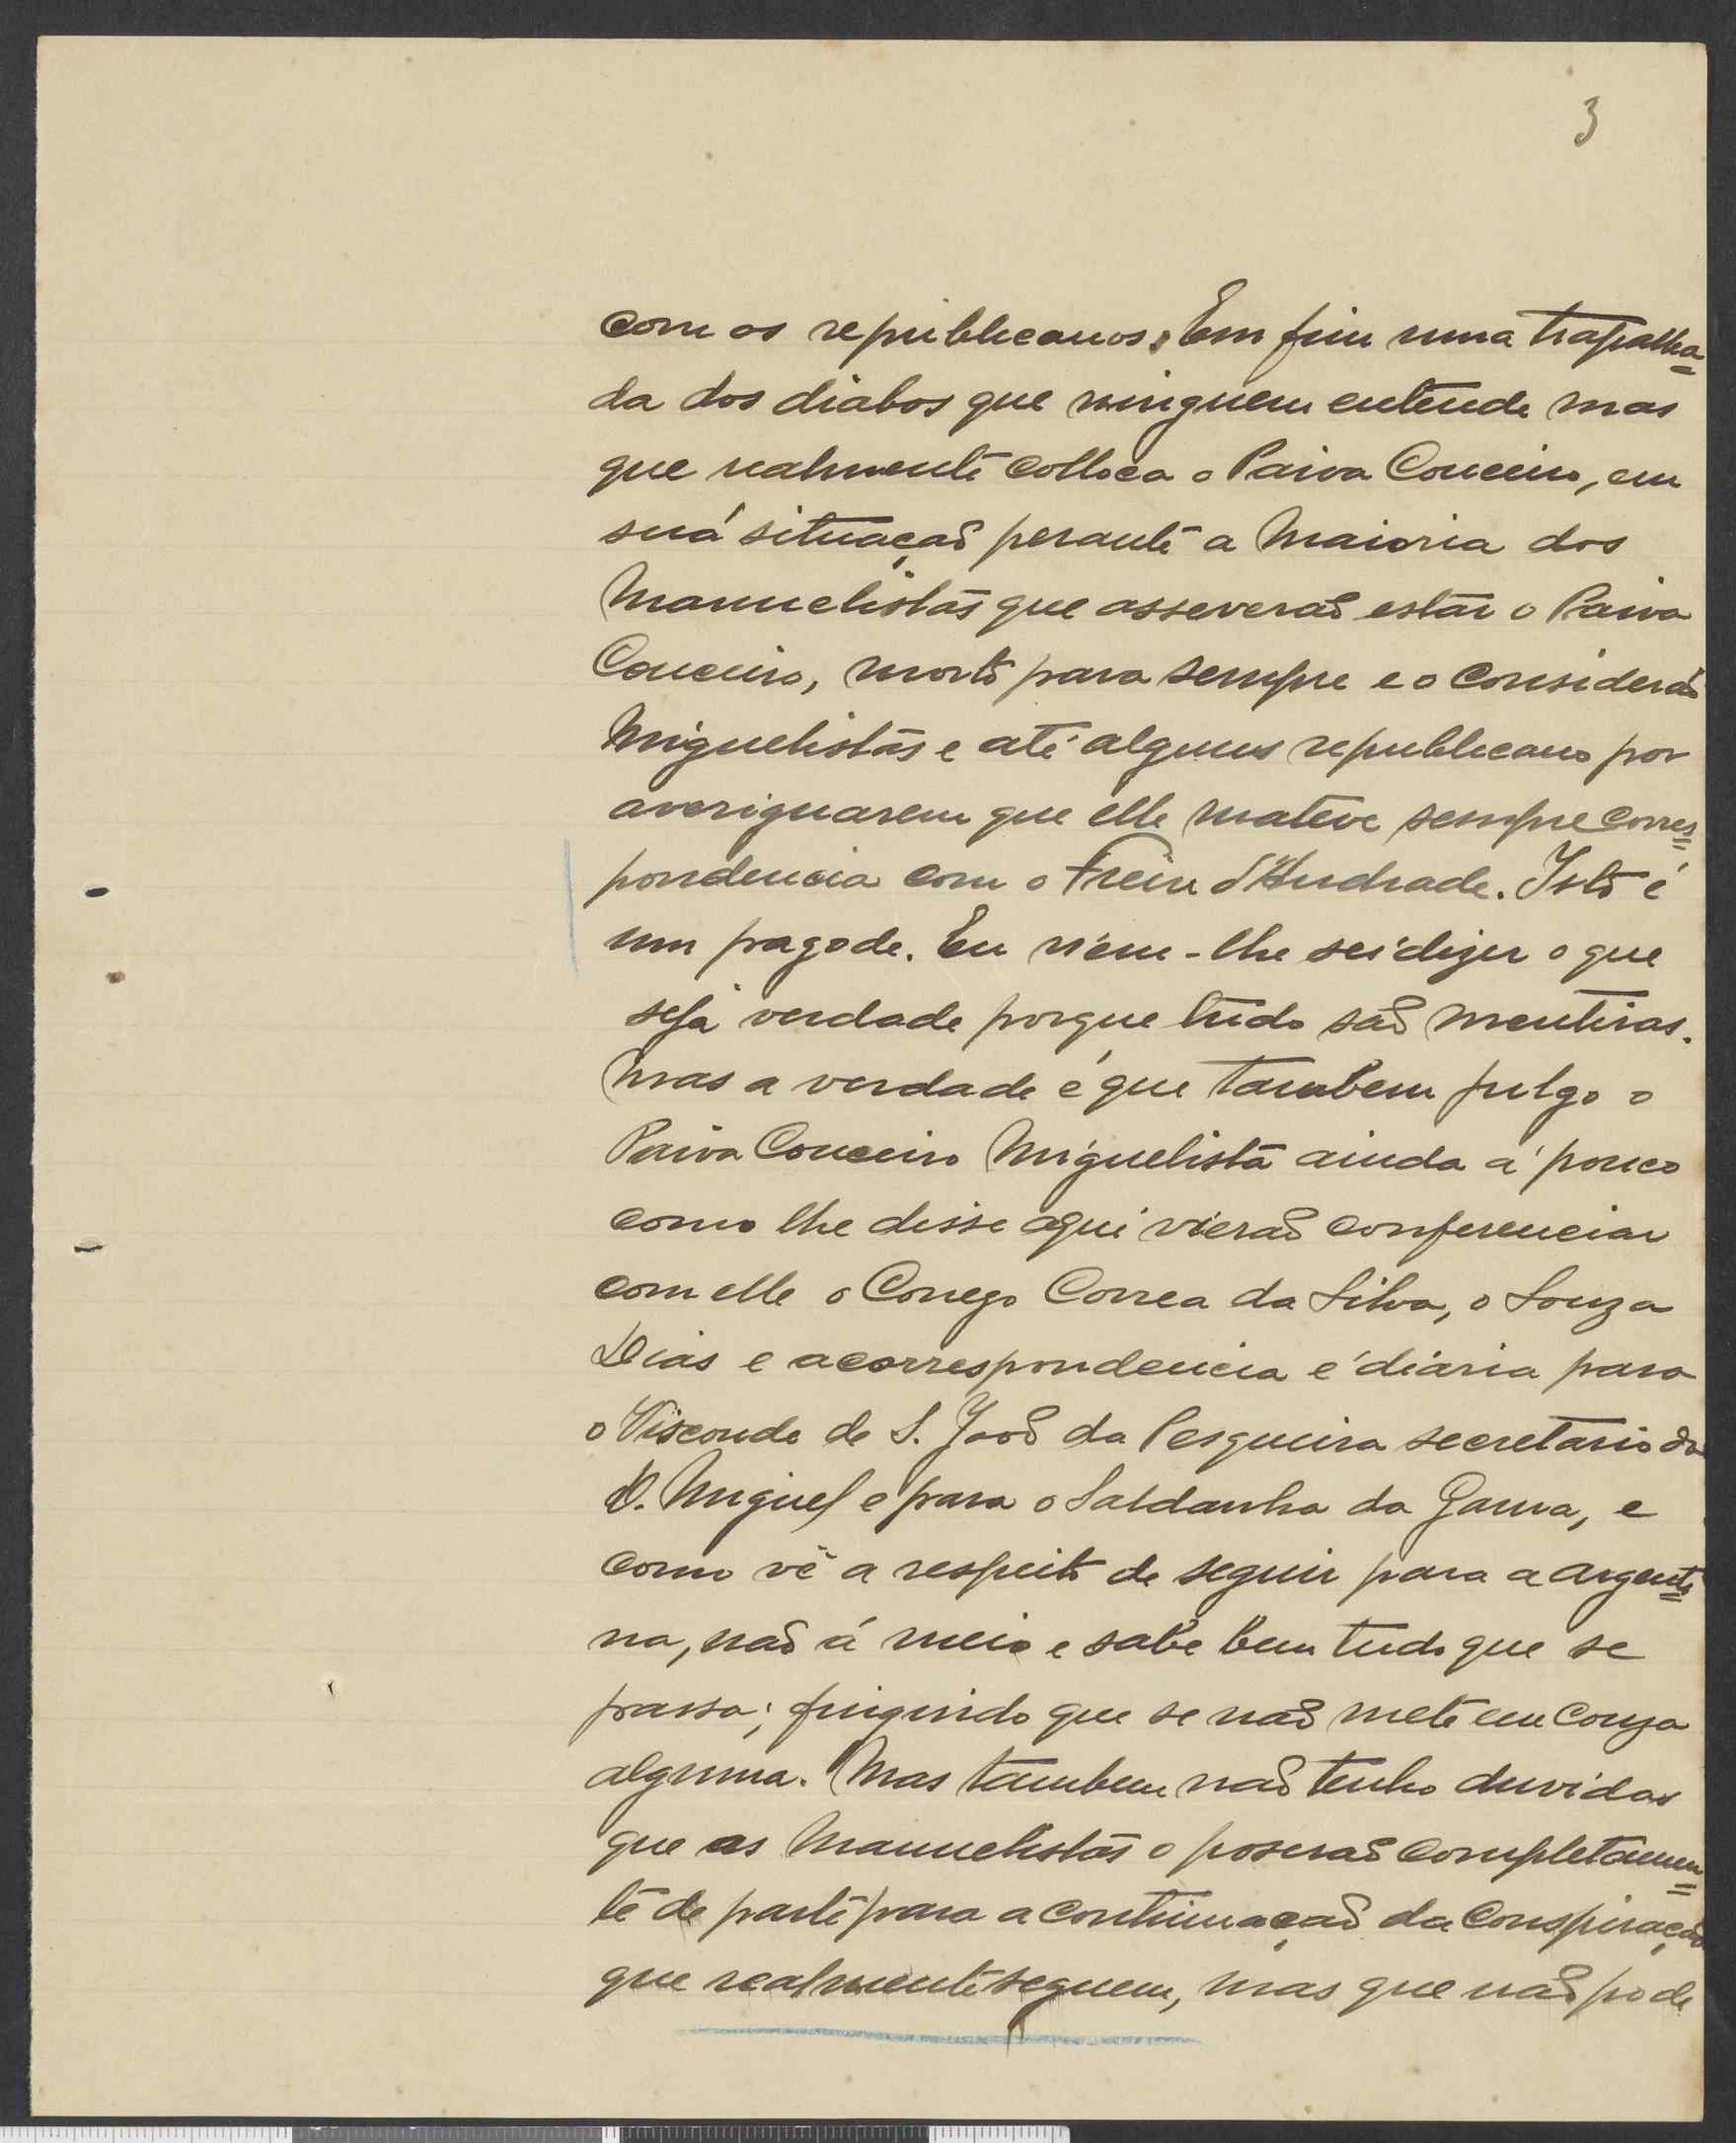 3
com os republicanos. Em fim uma trapalha=
da dos diabos que ninguem entende mas
que realmente colloca o Paiva Couceiro, em
suá situaçaõ perante a maioria dos
Manuelistas que asseveraõ estar o Paiva
Couceiro, morto para sempre e o consideraõ
Miguelistas e até alguns republicano por
averiguarem que elle mateve sempre corres=
pondencia com o Freire d'Andrade. Isto é
um pagode. Eu nem-lhe sei dizer o que
seja verdade porque tudo saõ mentiras.
Mas a verdade é que tambem julgo o
Paiva Couceiro Miguelista ainda á pouco
como lhe disse aqui vieraõ conferenciar
com elle o Conego Correa da Silva, o Souza
Dias e a correspondencia é diaria para
o Visconde de S. Joaõ da Pesqueira secretario do
D. Miguel e para o Saldanha da Gama, e
como vê a respeito de seguir para a argenti=
na, naõ á meio e sabe bem tudo que se
passa; finguindo que se naõ mete em couza
alguma. Mas tambem naõ tenho duvidas
que os Manuelistas o poseraõ completamen=
te de parte para a continuaçaõ da Conspiraçaõ
que realmente seguem, mas que naõ pode